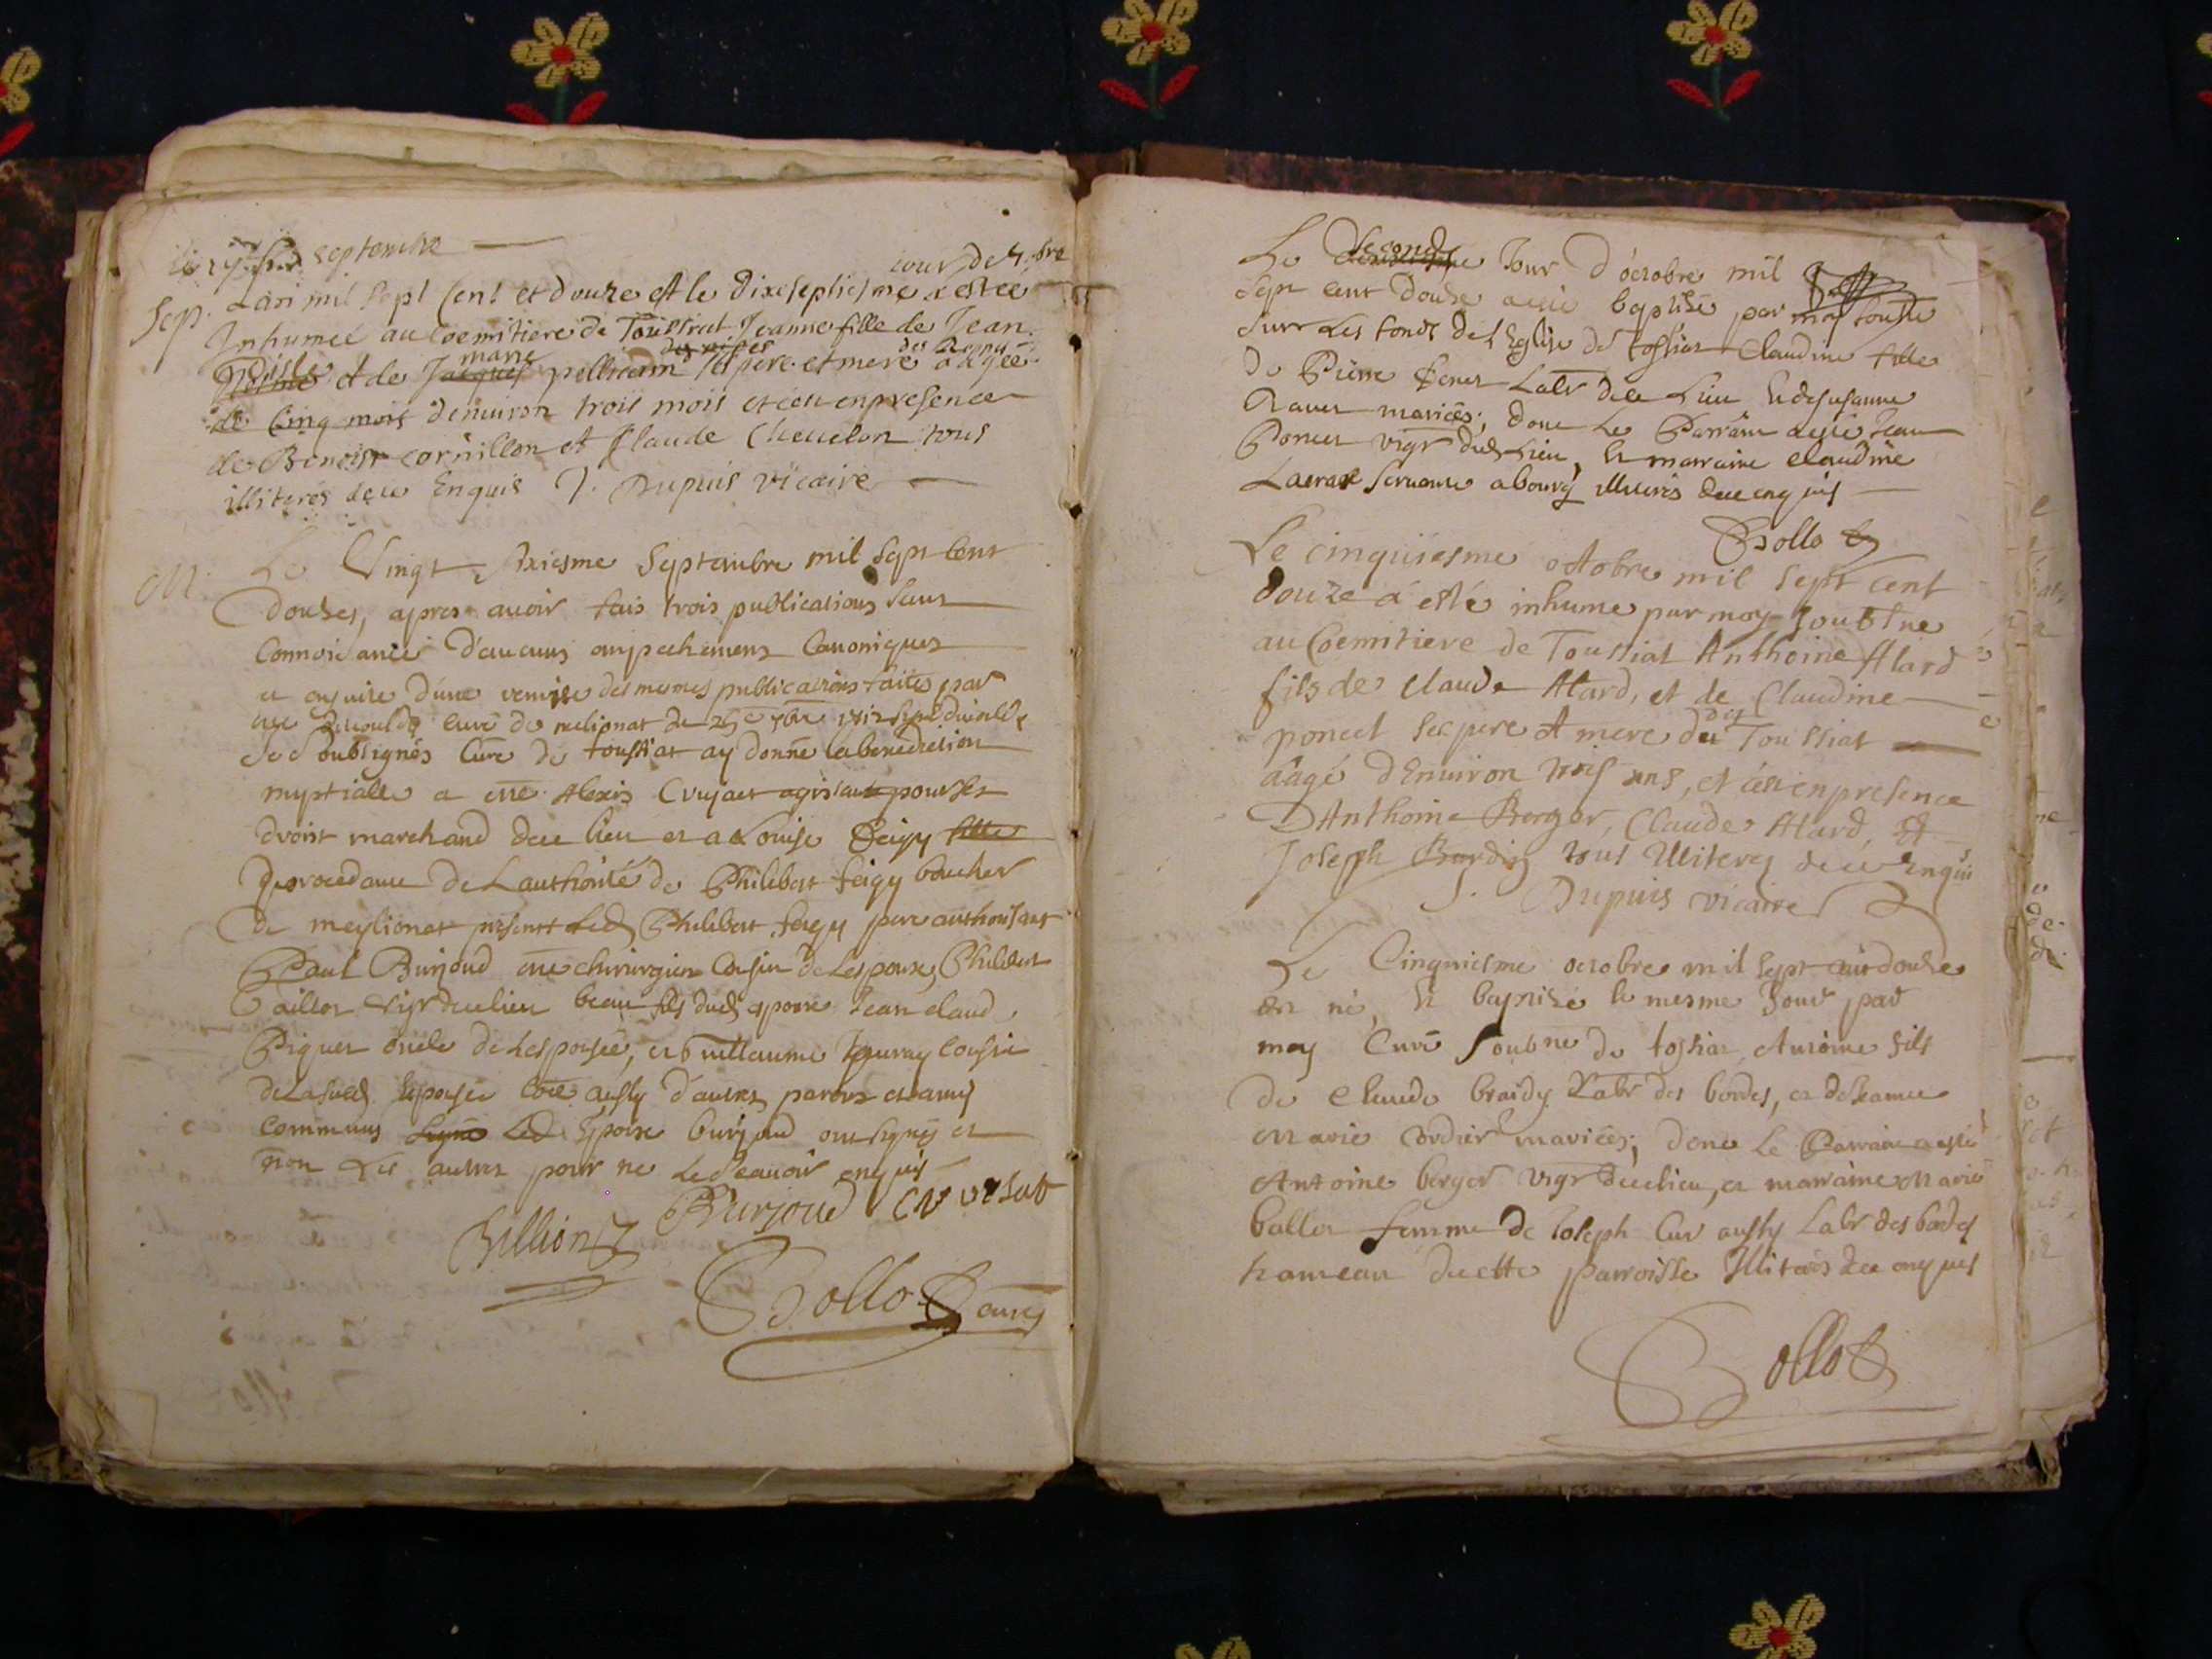 septembre
jour de 7.bre
Sep. Lan mil sept Cent et douze et le dixseptiesme a estée
Inhumée au Coemitiere de Toussiat Jeanne fille de Jean
marie
et de Jacques pellicann ses pere et mere aâgée
de Cinq mois denuiron trois mois et cea en presence
de Benoist cornillon et Claude Cheuelon tous
illiterés de ce Enquis J. Dupuis vicaire
M. Le Vingt Sixiesme Septembre mil Sept Cent
douzes, apres auoir fais trois publications Sans
Connoissance d'aucuns empechemens Canoniques
et ensuite d'une remise des mesmes publications faites par
curé de melionat du 25e 7bre 1712
Soubsignés Curé de toussiat ay donné la benediction
nuptialle a me Alexis agissant pour ses
droits marchand de ce lieu et a Louise feigy fille
procedante de Lauthorité de Philibert feigy boucher
de meylionat present Led Philibert feigy pere authorisant
Paul Burjoud me chirurgien Cousin de Lespoux, Philibert
vigr du lieu beau fils dud espoux Jean claude
Piquet oncle de Lespousée, et Guillaume Cousin
de Lasued Espousée Coe aussy d'autres parens et amis
Communs Signé Led Espoux burjoud ont signés et
non Les autres pour ne Le Scauoir enquis
Burjoud
Billion
Bollot curé
Le Second Jour d'octobre mil
Sept cent Douze a esté baptisée par moy soubne
Sur Les fonds de l'Eglise de tossiat Claudine fille
de Pierre Labr de ce Lieu et de Susanne
Rauet mariés; dont Le Parrain a esté Jean
Poncet vigr dud Lieu, et marraine claudine
Seruante a bourg illiterés de ce enquis
Bollot
Le cinquiesme octobre mil Sept Cent
douze á esté inhumé par moy Soubne
au Coemitiere de Toussiat Anthoine Alard
fils de Claude Alard, et de Claudine
poncet ses pere et mere dud Toussiat
âagé d'Enuiron trois ans, et cea en presence
D'Anthoine Berger, Claude Alard, et
Joseph Burdin tous Illiterés de ce Enquis
J. Dupuis vicaire
Le Cinquiesme octobre mil Sept cent douze
est né, et baptisé le mesme Jour par
moy Curé Soubne de tossiat, Antoine fils
de Claude braidy Labr des bordes, et de Jeanne
marie Cordier mariés; dont Le Parrain a esté
Antoine berger vigr de ce lieu, et marraine Marie
ballet femme de Joseph Cur aussy Labr des bordes
hameau de cette parroisse Illiterés de ce enquis
Bollot